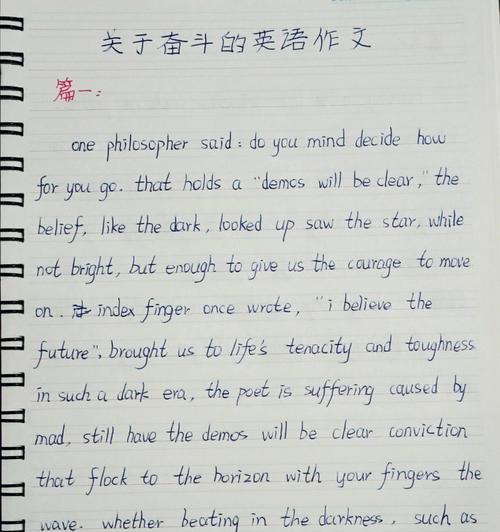 关于奋斗的英语作文
篇一:
one philosopher said: do you mind decide how
for you go. that holds a "demos will be clear," the
belief, like the dark, looked up saw the star, while
not bright, but enough to give us the courage to move
on. index finger once wrote, "i believe the
future", brought us to life's tenacity and toughness
in such a dark era, the poet is suffering caused by
mad, still have the demos will be clear conviction
that flock to the horizon with your fingers the
wave. whether beating in the darkness, such as